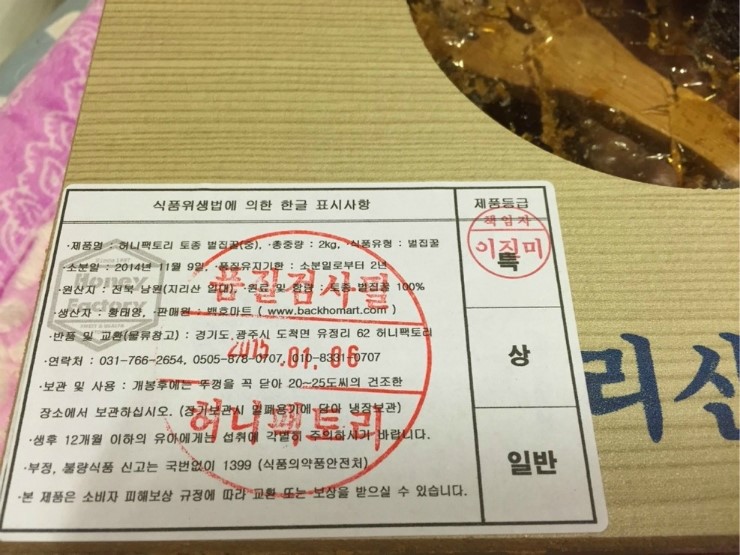 식품위생법에 의한 한글 표시사항
제품등급
·제품명 : 허니팩토리 토종 벌집꿀(중), ·총중량 : 2kg, ·식품유형 : 벌집꿀
·소분일 : 2014년 11월 9일, ·품질유지기한 : 소분일로부터 2년
·원산지 : 전북 남원(지리산 일대), ·원료 및 함량 : 토종 벌집꿀 100%
·생산자 : 황태양, ·판매원 : 백호마트 ( www.backhomart.com )
·반품 및 교환(물류참고) : 경기도 광주시 도척면 유정리 62 허니팩토리
·연락처 : 031-766-2654, 0505-878-0707, 010-8331-0707
·보관 및 사용 : 개봉후에는 뚜껑을 꼭 닫아 20~25도씨의 건조한
장소에서 보관하십시오. (장기보관시 밀폐용기에 담아 냉장보관)
·생후 12개월 이하의 유아에게는 섭취에 각별히 주의하시기 바랍니다.
·부정, 불량식품 신고는 국번없이 1399 (식품의약품안전처)
·본 제품은 소비자 피해보상 규정에 따라 교환 또는 보상을 받으실 수 있습니다.
특
상
일반
책임자
이진미
품질검사필
2015.01.06
허니팩토리
Honey
Factory
리산